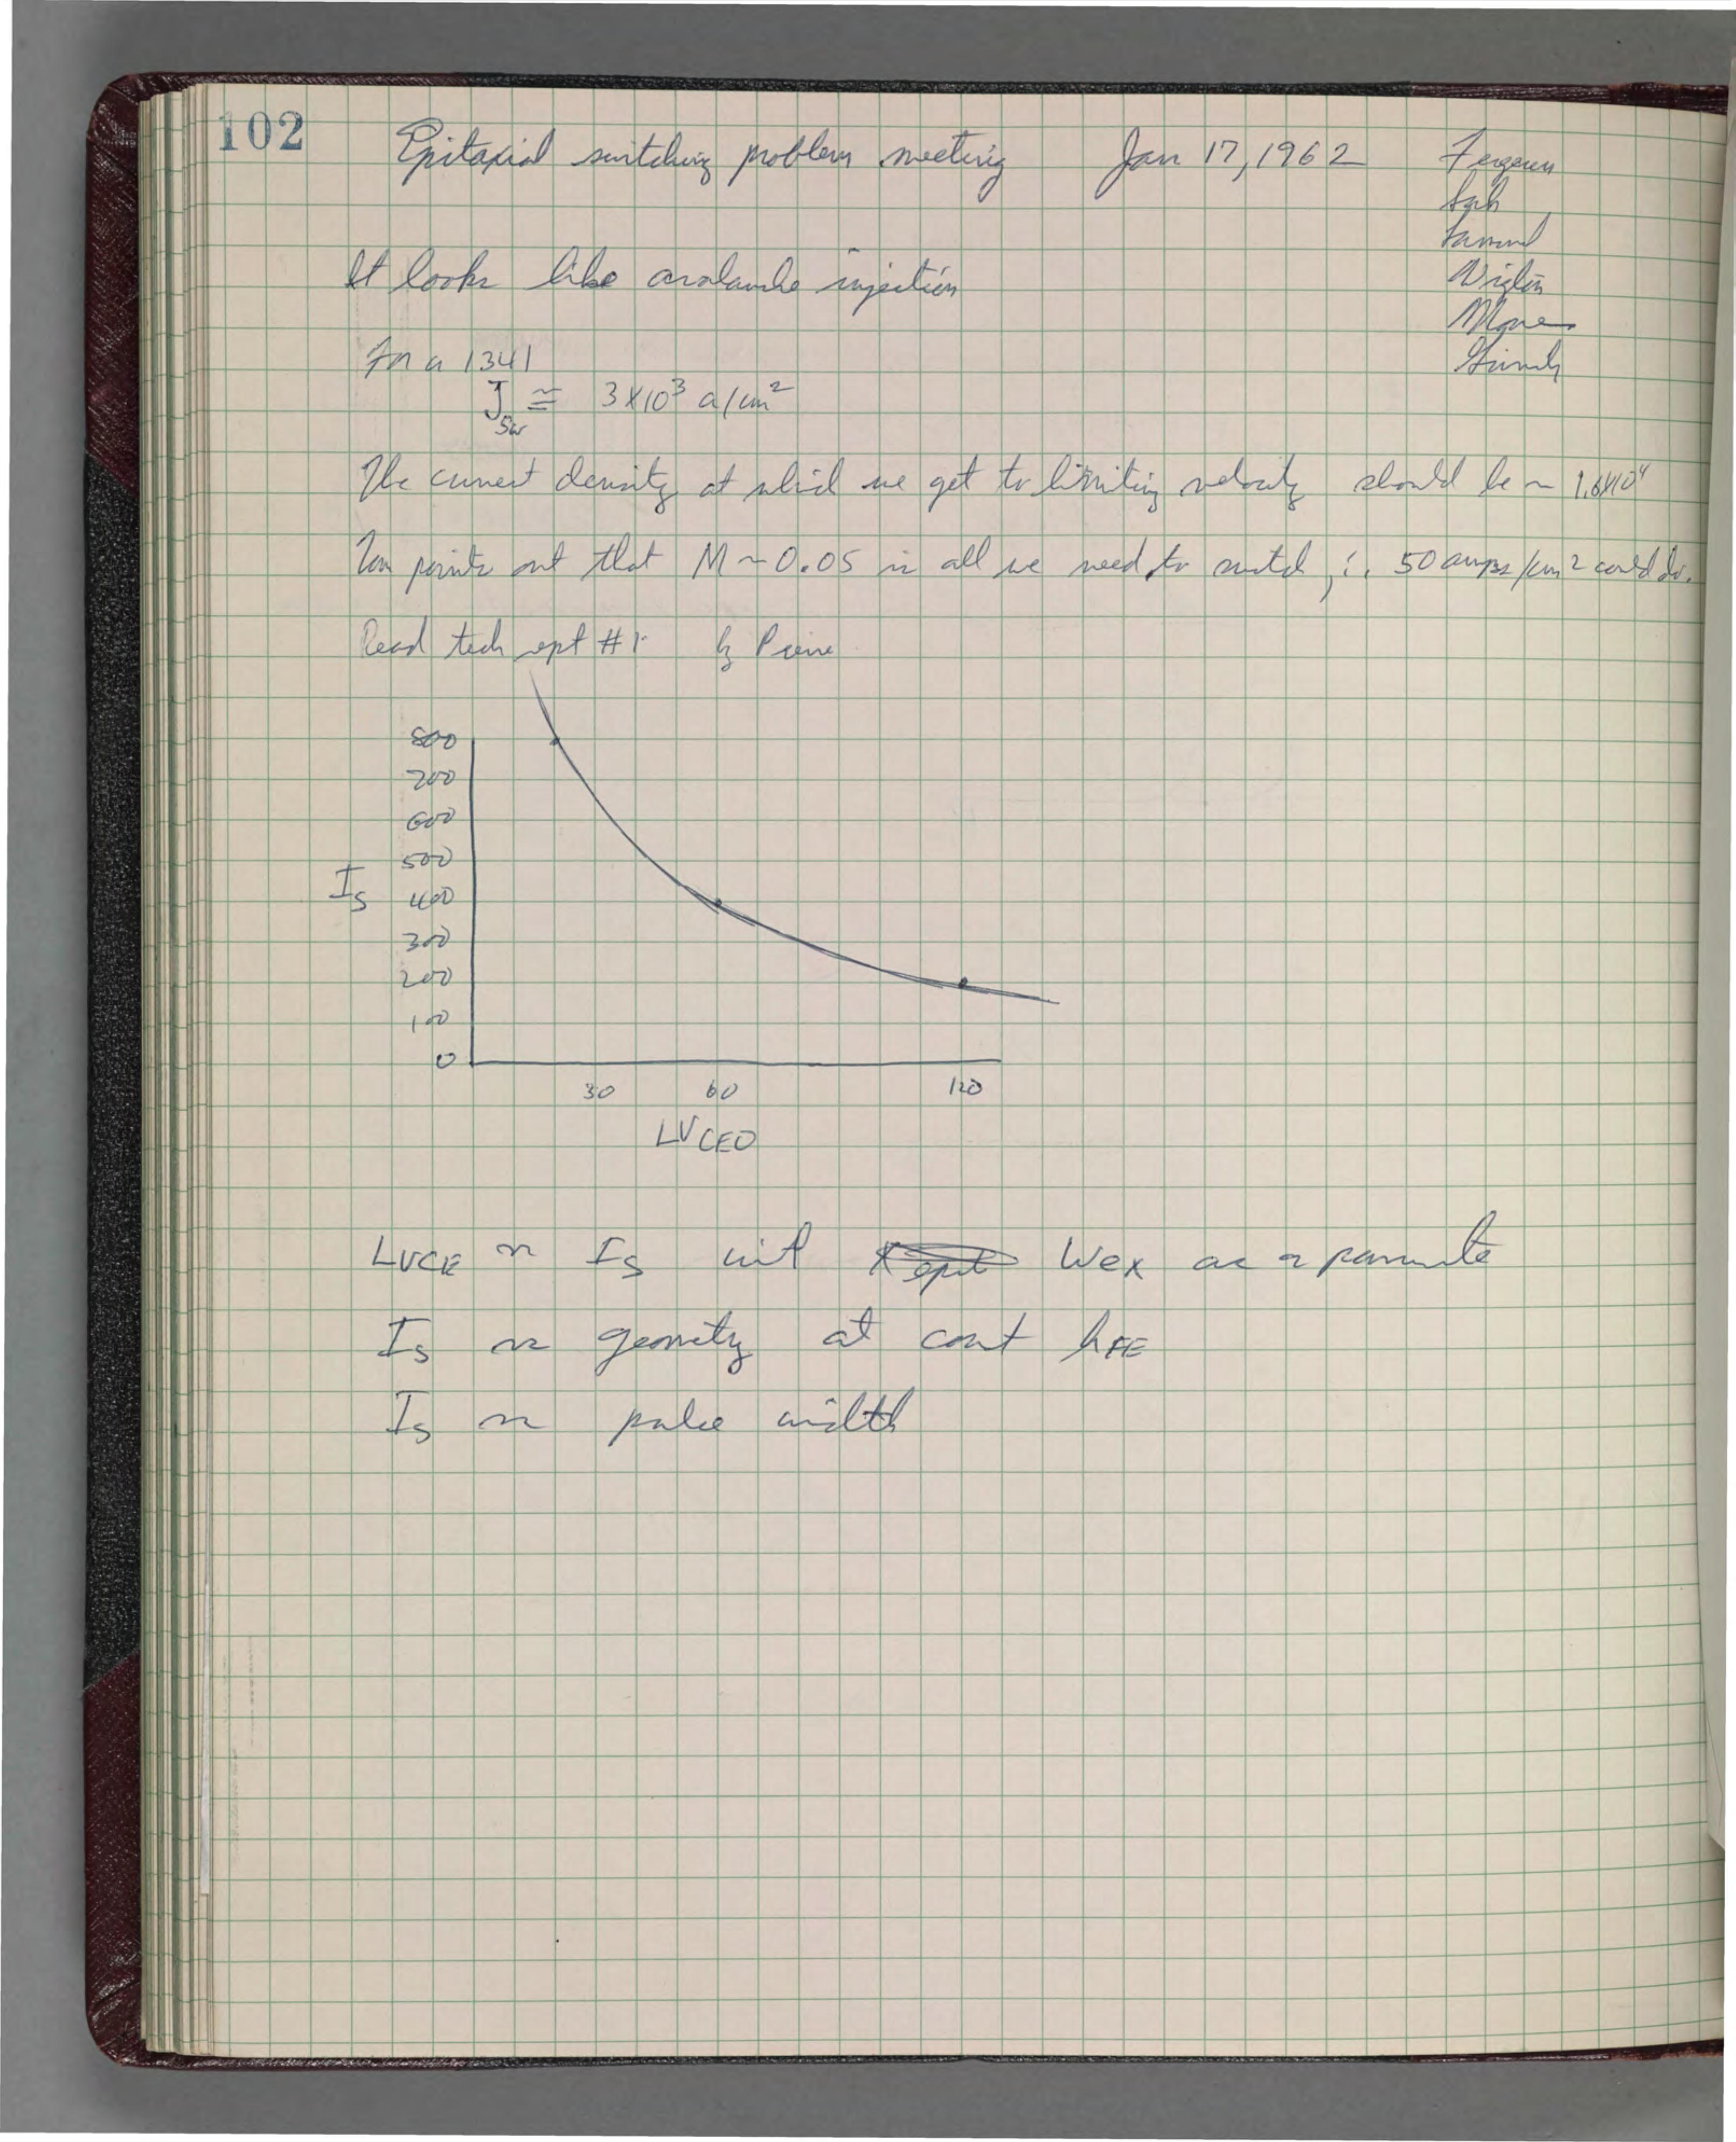 102
Epitaxial switching problem meeting Jan 17, 1962
Ferguson
Sah
Wigton
Moore
Grinich
It looks like avalanche injection
For a 1341
J_SW ≅ 3×10³ a/cm²
The current density at which we get to limiting velocity should be ~ 1.6×10⁴
points out that M ~ 0.05 is all we need to switch, ∴ 50 amps/cm² could do.
Read tech rept # by
800
700
600
500
I_S 400
300
200
100
0
30 60 120
LV_CEO
LVCE vs I_S with Wex as a parameter
I_S vs geometry at const hFE
I_S vs pulse width